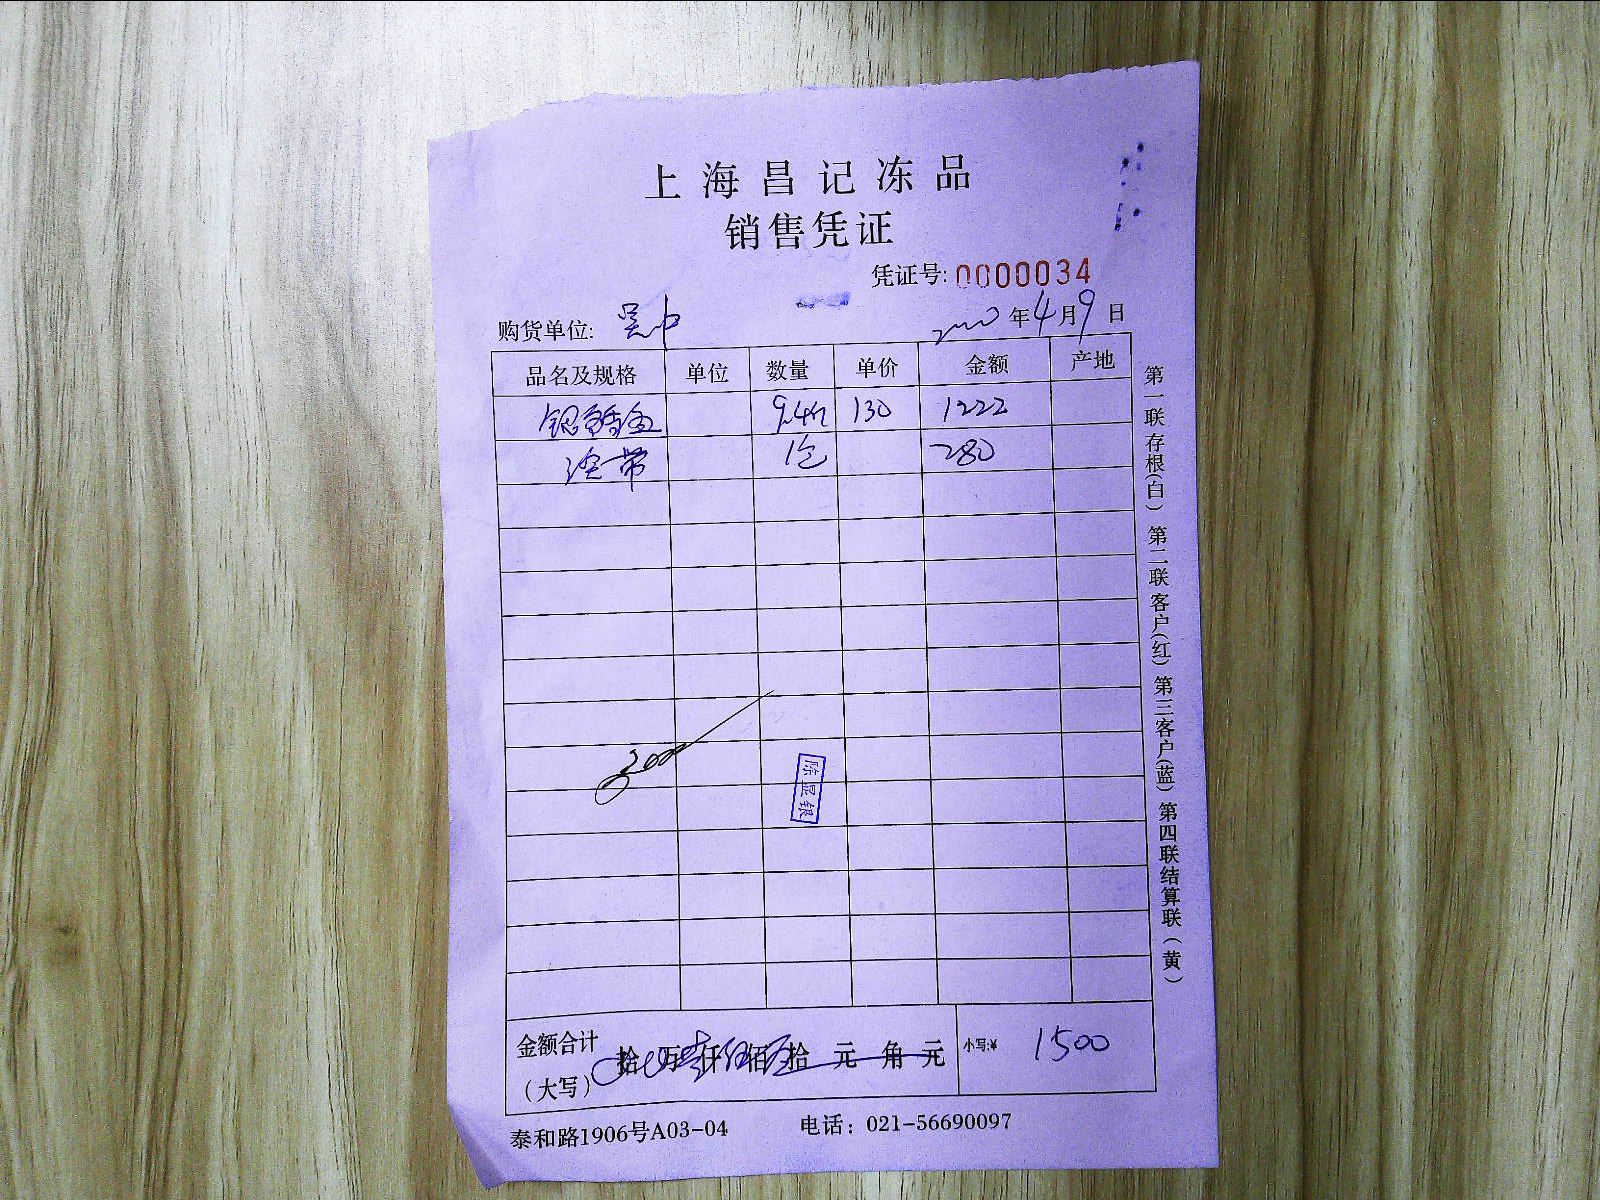 上海昌记冻品
销售凭证
凭证号:0000034
购货单位: 吴中
年4月9日
品名及规格 单位 数量 单价 金额 产地
银 9.4 130 1222
带 1包 280
陈显银
金额合计
（大写） 拾 万 仟 佰 拾 元 角 元 小写:¥ 1500
泰和路1906号A03-04 电话：021-56690097
第一联存根(白) 第二联客户(红) 第三客户(蓝) 第四联结算联(黄)